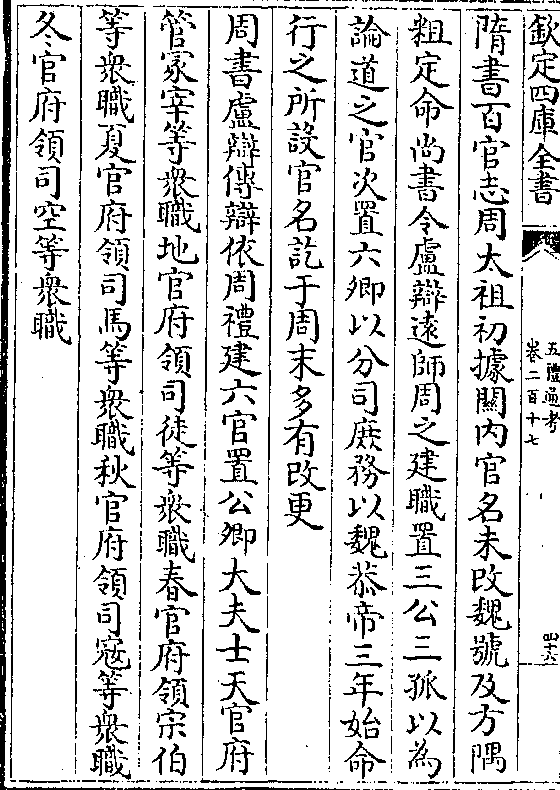 欽定四庫全書
五禮通考
卷二百十七
四十六
隋書百官志周太祖初據關内官名未改魏號及方隅
粗定命尚書令盧辯遠師周之建職置三公三孤以為
論道之官次置六卿以分司庶務以魏恭帝三年始命
行之所設官名訖于周末多有改更
周書盧辯傳辯依周禮建六官置公卿大夫士天官府
管冢宰等衆職地官府領司徒等衆職春官府領宗伯
等衆職夏官府領司馬等衆職秋官府領司寇等衆職
冬官府領司空等衆職